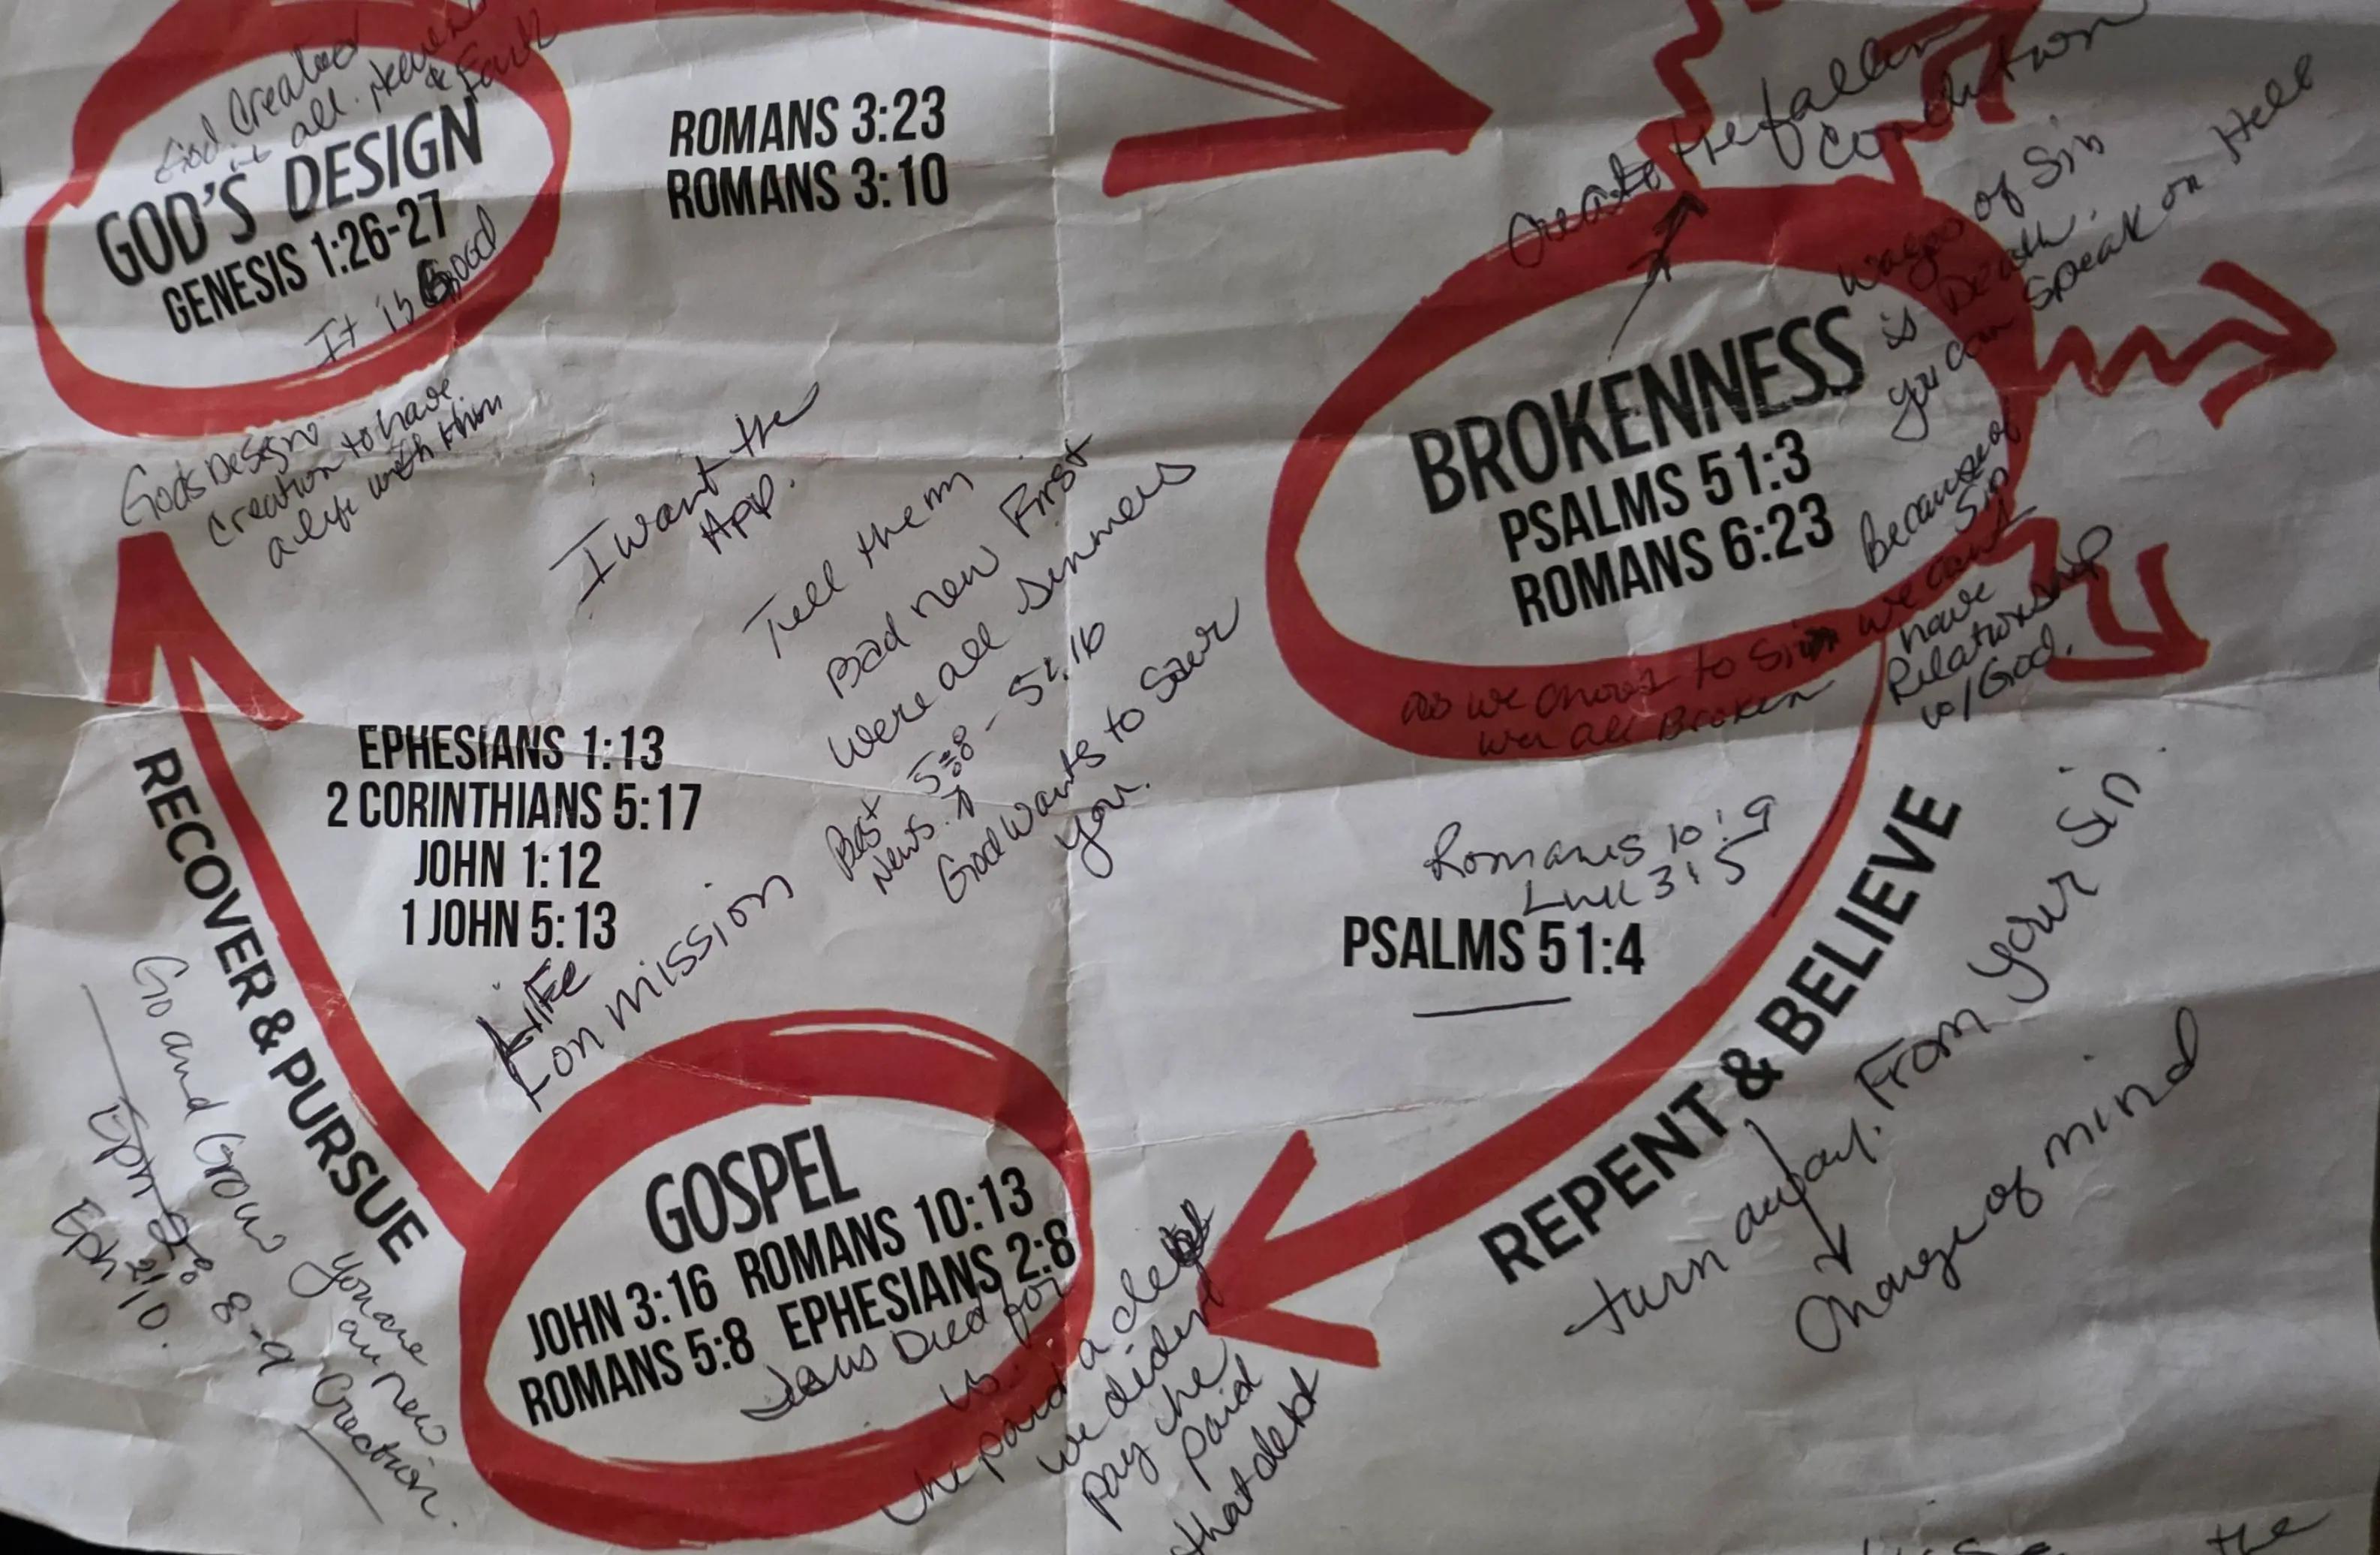 God Created
it all. Heavens
& Earth
GOD'S DESIGN
GENESIS 1:26-27
It is Good
Gods Design
Creation to have
a life with Him
ROMANS 3:23
ROMANS 3:10
Create the fallen
Condition
Wages of Sin
is Death.
You can Speak on Hell
BROKENNESS
PSALMS 51:3
ROMANS 6:23
Because of
Sin
we cant
have
Relationship
w/God.
as we choose to Sin
wer all Broken
I want the
App.
Tell them
Bad new First
were all Sinners
Best 5:8 - 5:16
News.
God wants to Save
you.
EPHESIANS 1:13
2 CORINTHIANS 5:17
JOHN 1:12
1 JOHN 5:13
LIFE
on mission
RECOVER & PURSUE
Go and Grow
Eph 2:8 8-9
Eph 2/10.
You are
a new
Creation.
Romans 10:9
Luk 3:5
PSALMS 51:4
REPENT & BELIEVE
turn away. From your Sin.
Change of mind
GOSPEL
JOHN 3:16 ROMANS 10:13
ROMANS 5:8 EPHESIANS 2:8
Jesus Died for
us.
he paid a debt
we didn't
pay he
paid
that debt
the